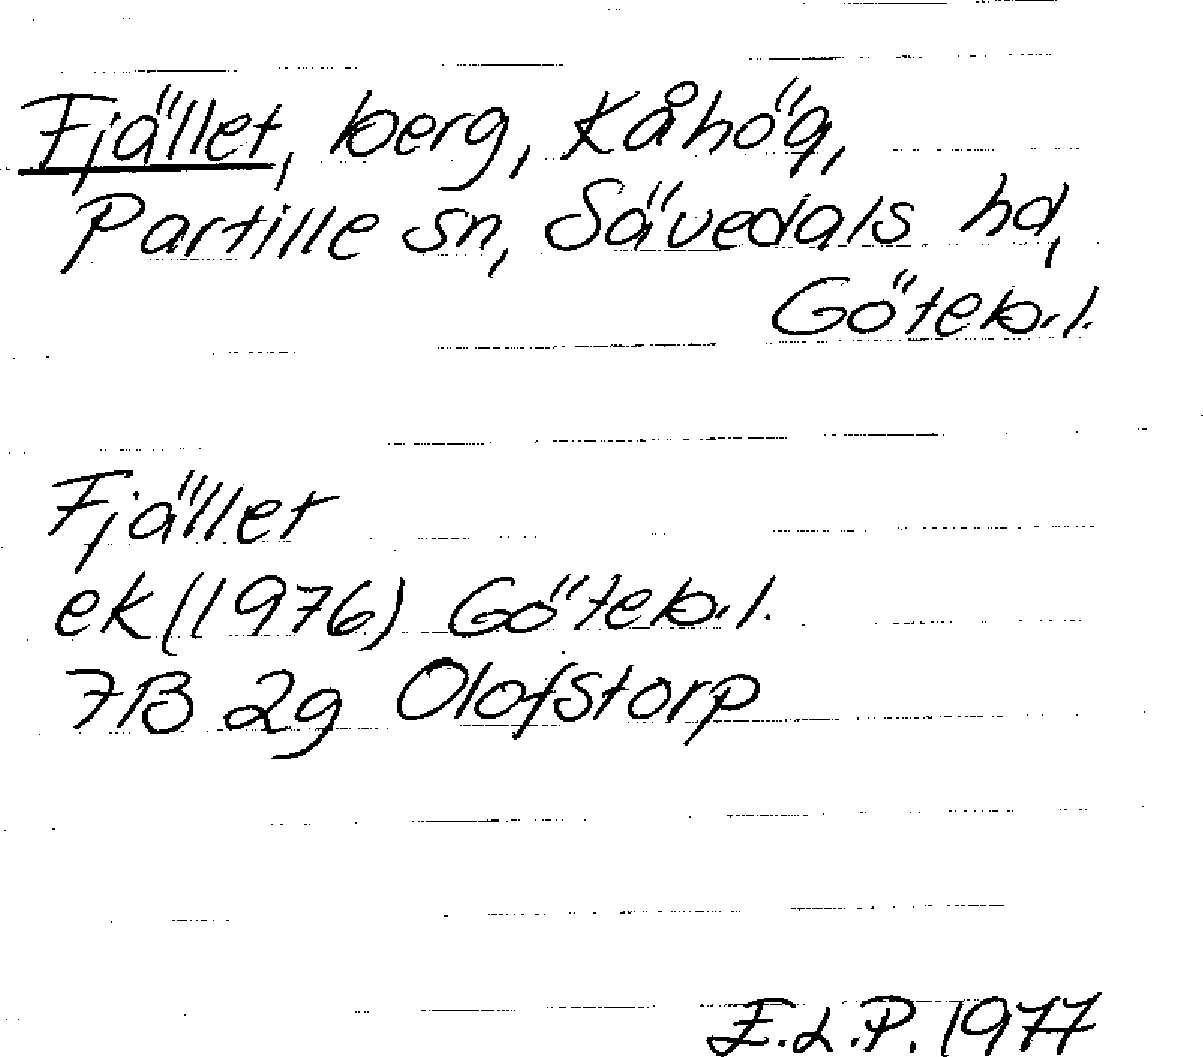 Fjället, berg, Kåhög,
Partille sn, Sävedals hd,
Göteb.l.
Fjället
ek (1976) Göteb.l.
7B 2g Olofstorp
E.L.P. 1977